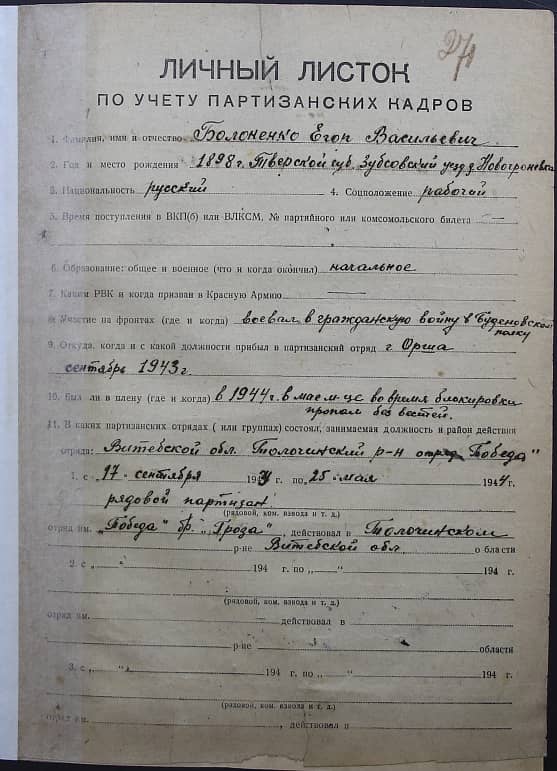 271
ЛИЧНЫЙ ЛИСТОК
ПО УЧЕТУ ПАРТИЗАНСКИХ КАДРОВ
1. Фамилия, имя и отчество Болоненко Егор Васильевич
2. Год и место рождения 1898 г. Тверской губ. Зубсовский уезд д. Новогроневка
3. Национальность русский 4. Соцположение рабочий
5. Время поступления в ВКП(б) или ВЛКСМ, № партийного или комсомольского билета —
6. Образование: общее и военное (что и когда окончил) начальное
7. Каким РВК и когда призван в Красную Армию —
8. Участие на фронтах (где и когда) воевал в гражданскую войну в Буденовской
полку
9. Откуда, когда и с какой должности прибыл в партизанский отряд г. Орша
сентябрь 1943 г
10. Был ли в плену (где и когда) в 1944 г. в мае м-це во время блокировки
пропал без вестей.
11. В каких партизанских отрядах ( или группах) состоял, занимаемая должность и район действия
отряда: Витебской обл. Толочинский р-н отряд „Победа"
1. с 17 сентября 1943 г. по 25 мая 1944 г.
рядовой партизан
(рядовой, ком. взвода и т. д.)
отряд им. „Победа" бр. „Гроза", действовал в Толочинском
р-не Витебской обл о бласти
2. с „ " 194 г. по „ — " 194 г.
(рядовой, ком. взвода и т. д.)
отряд им. действовал в
р-не области
3. с „ " 194 г. по „ — " 194 г.
(рядовой, ком. взвода и т. д.)
отряд им. , действовал в